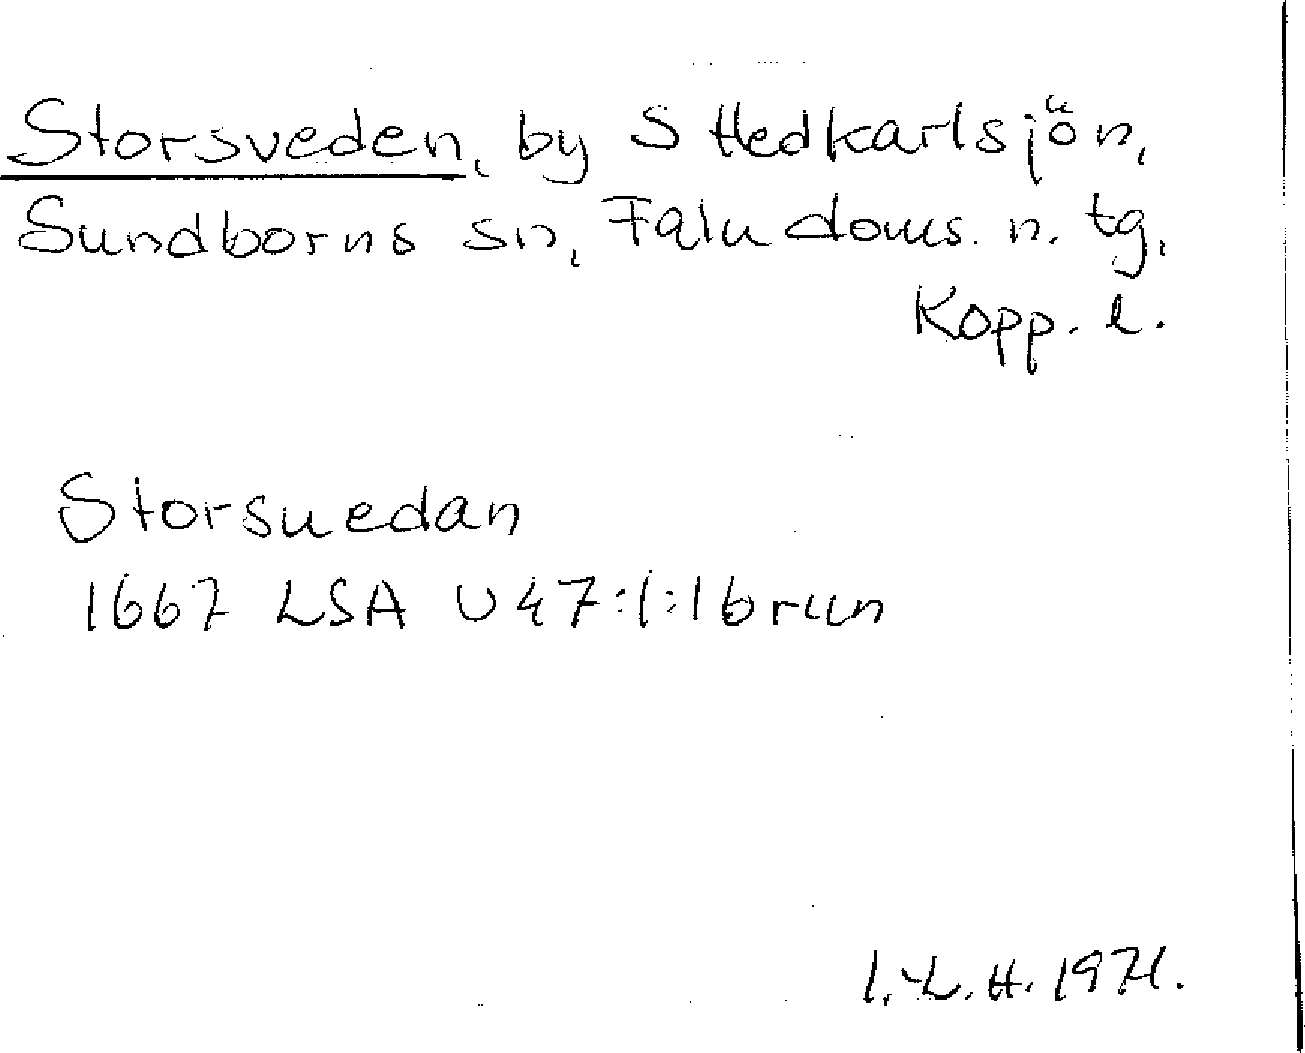 Storsveden, by S Hedkarlsjön,
Sundborns sn, Falu doms. n. tg,
Kopp. l.
Storsuedan
1667 LSA U47:1:1brun
I.-L. H. 1971.